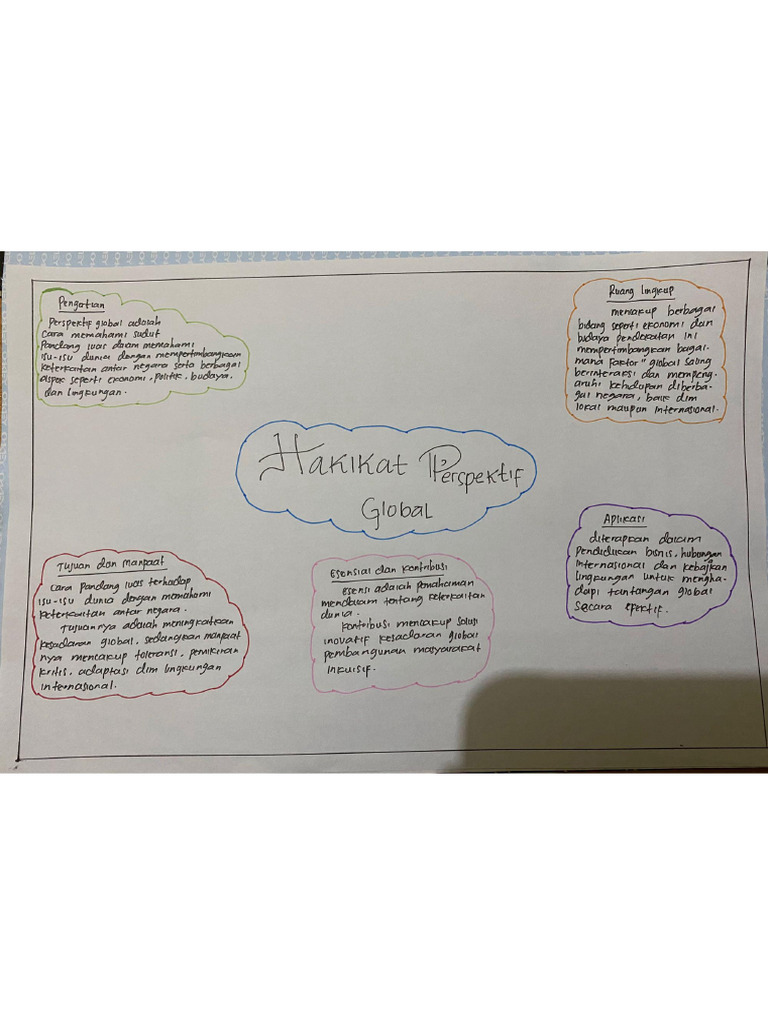 Pengertian
Perspektif global adalah
cara memahami sudut
Pandang luas dalam memahami
isu-isu dunia dengan mempertimbangkan
keterkaitan antar negara serta berbagai
aspek seperti ekonomi, politik, budaya,
dan lingkungan.
Ruang lingkup
mencakup berbagai
bidang seperti ekonomi dan
budaya pendekatan ini
mempertimbangkan bagai-
mana faktor" global saling
berinteraksi dan mempeng-
aruhi kehidupan diberba-
gai negara, baik dlm
lokal maupun internasional.
Hakikat Perspektif
Global
Tujuan dan Manfaat
Cara Pandang luas terhadap
isu-isu dunia dengan memahami
keterkaitan antar negara.
Tujuannya adalah meningkatkan
kesadaran global, sedangkan manfaat
nya mencakup toleransi, pemikiran
kritis, adaptasi dlm lingkungan
internasional.
Esensial dan Kontribusi
Esensi adalah pemahaman
mendalam tentang keterkaitan
dunia.
Kontribusi mencakup solusi
inovatif kesadaran global
pembangunan masyarakat
inkulsif.
Aplikasi
diterapkan dalam
Pendidikan bisnis, hubungan
internasional dan kebajkan
lingkungan untuk mengha-
dapi tantangan global
secara efektif.